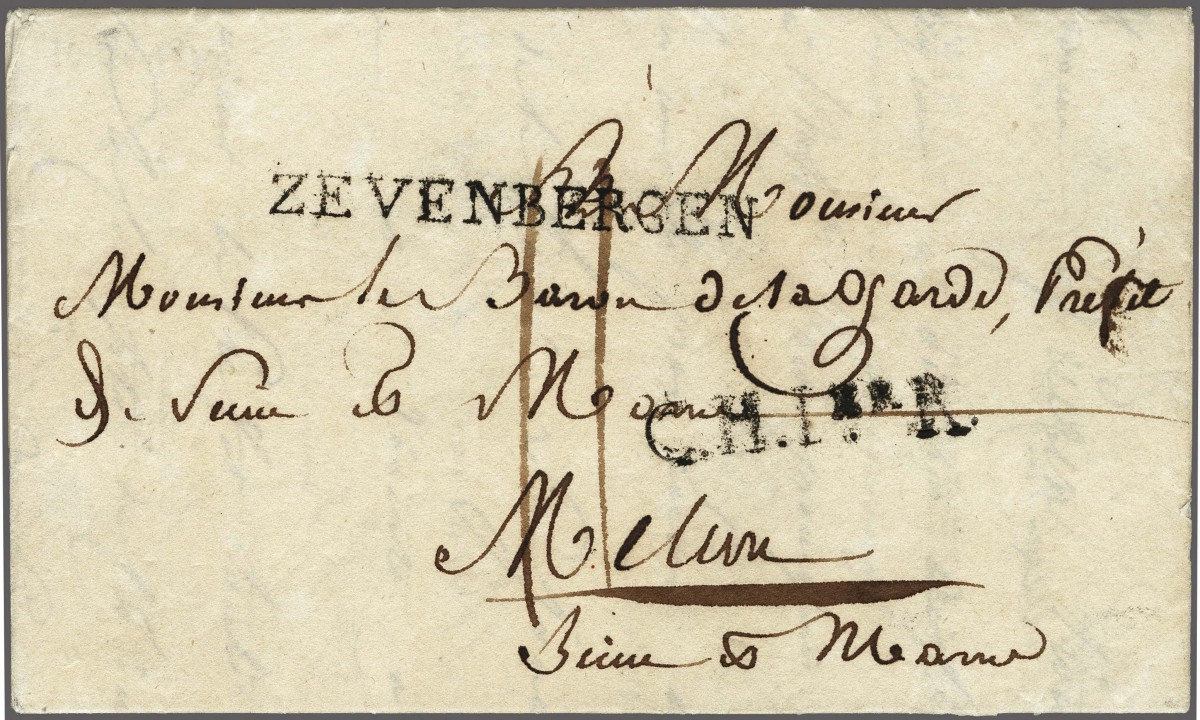 ZEVENBERGEN
A Monsieur
Monsieur le Baron de la Garde, Préfet
de Seine et Marne
C.H.1ER R.
Melun
Seine et Marne